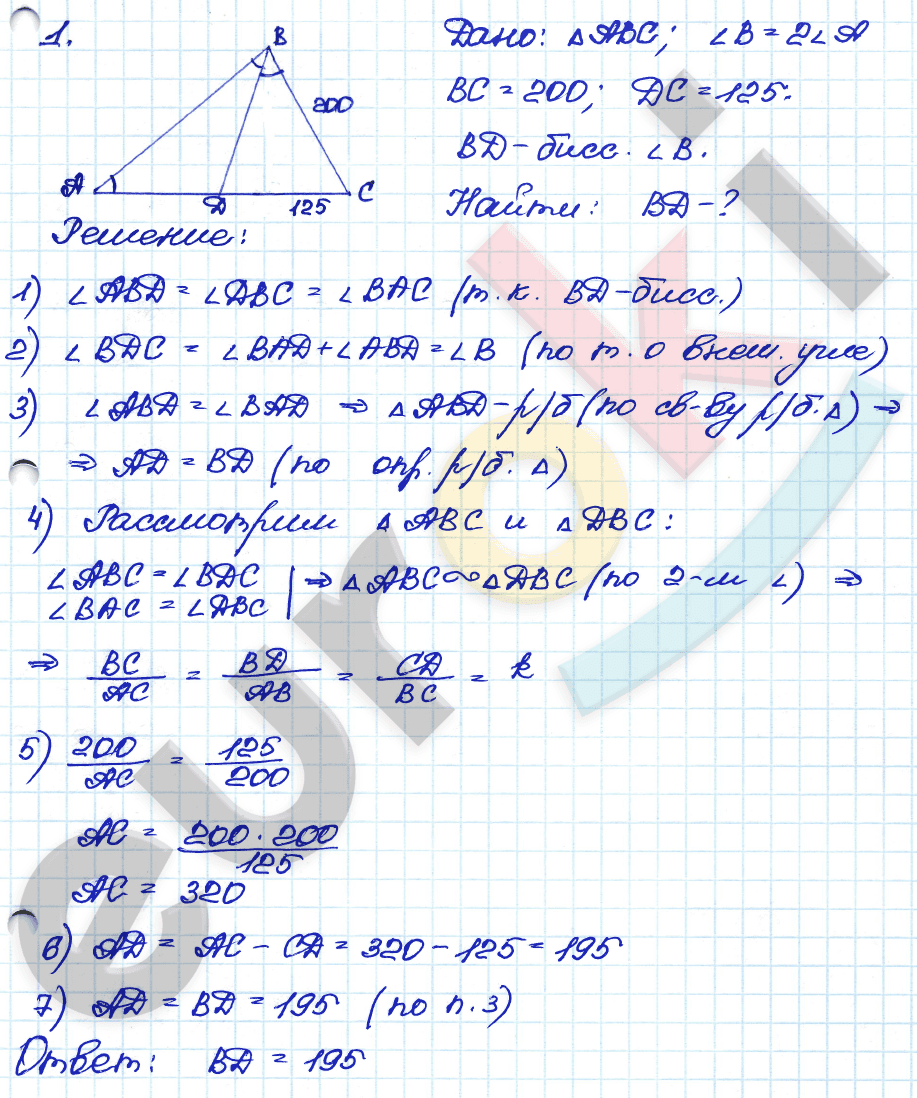 1.
B
200
A
D
125
C
Дано: △ABC; ∠B = 2∠A
BC = 200; DC = 125.
BD - бисс. ∠B.
Найти: BD - ?
Решение:
1) ∠ABD = ∠DBC = ∠BAC (т.к. BD-бисс.)
2) ∠BDC = ∠BAD + ∠ABD = ∠B (по т. о внеш. угле)
3) ∠ABD = ∠BAD ⇒ △ABD - р/б (по св-ву р/б. △) ⇒
⇒ AD = BD (по опр. р/б. △)
4) Рассмотрим △ABC и △DBC:
∠ABC = ∠BDC | ⇒ △ABC ∾ △DBC (по 2-м ∠) ⇒
∠BAC = ∠ABC |
⇒ BC/AC = BD/AB = CD/BC = k
5) 200/AC = 125/200
AC = 200 · 200/125
AC = 320
6) AD = AC - CD = 320 - 125 = 195
7) AD = BD = 195 (по п. 3)
Ответ: BD = 195
euroki